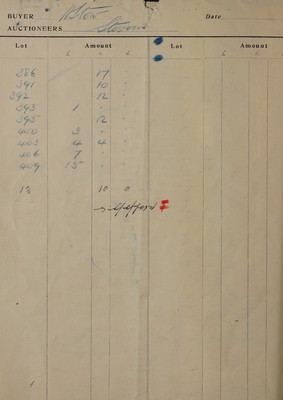 BUYER Date
AUCTIONEERS Stevens
Lot Amount Lot Amount
£ s d £ s d
386 17 -
391 10 -
392 12 -
393 1 - -
395 12 -
400 3 - -
403 4 4 -
406 7 - -
409 15 - -
13 10 0